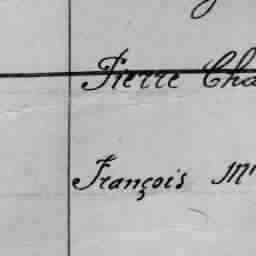 Pierre Cha
François M